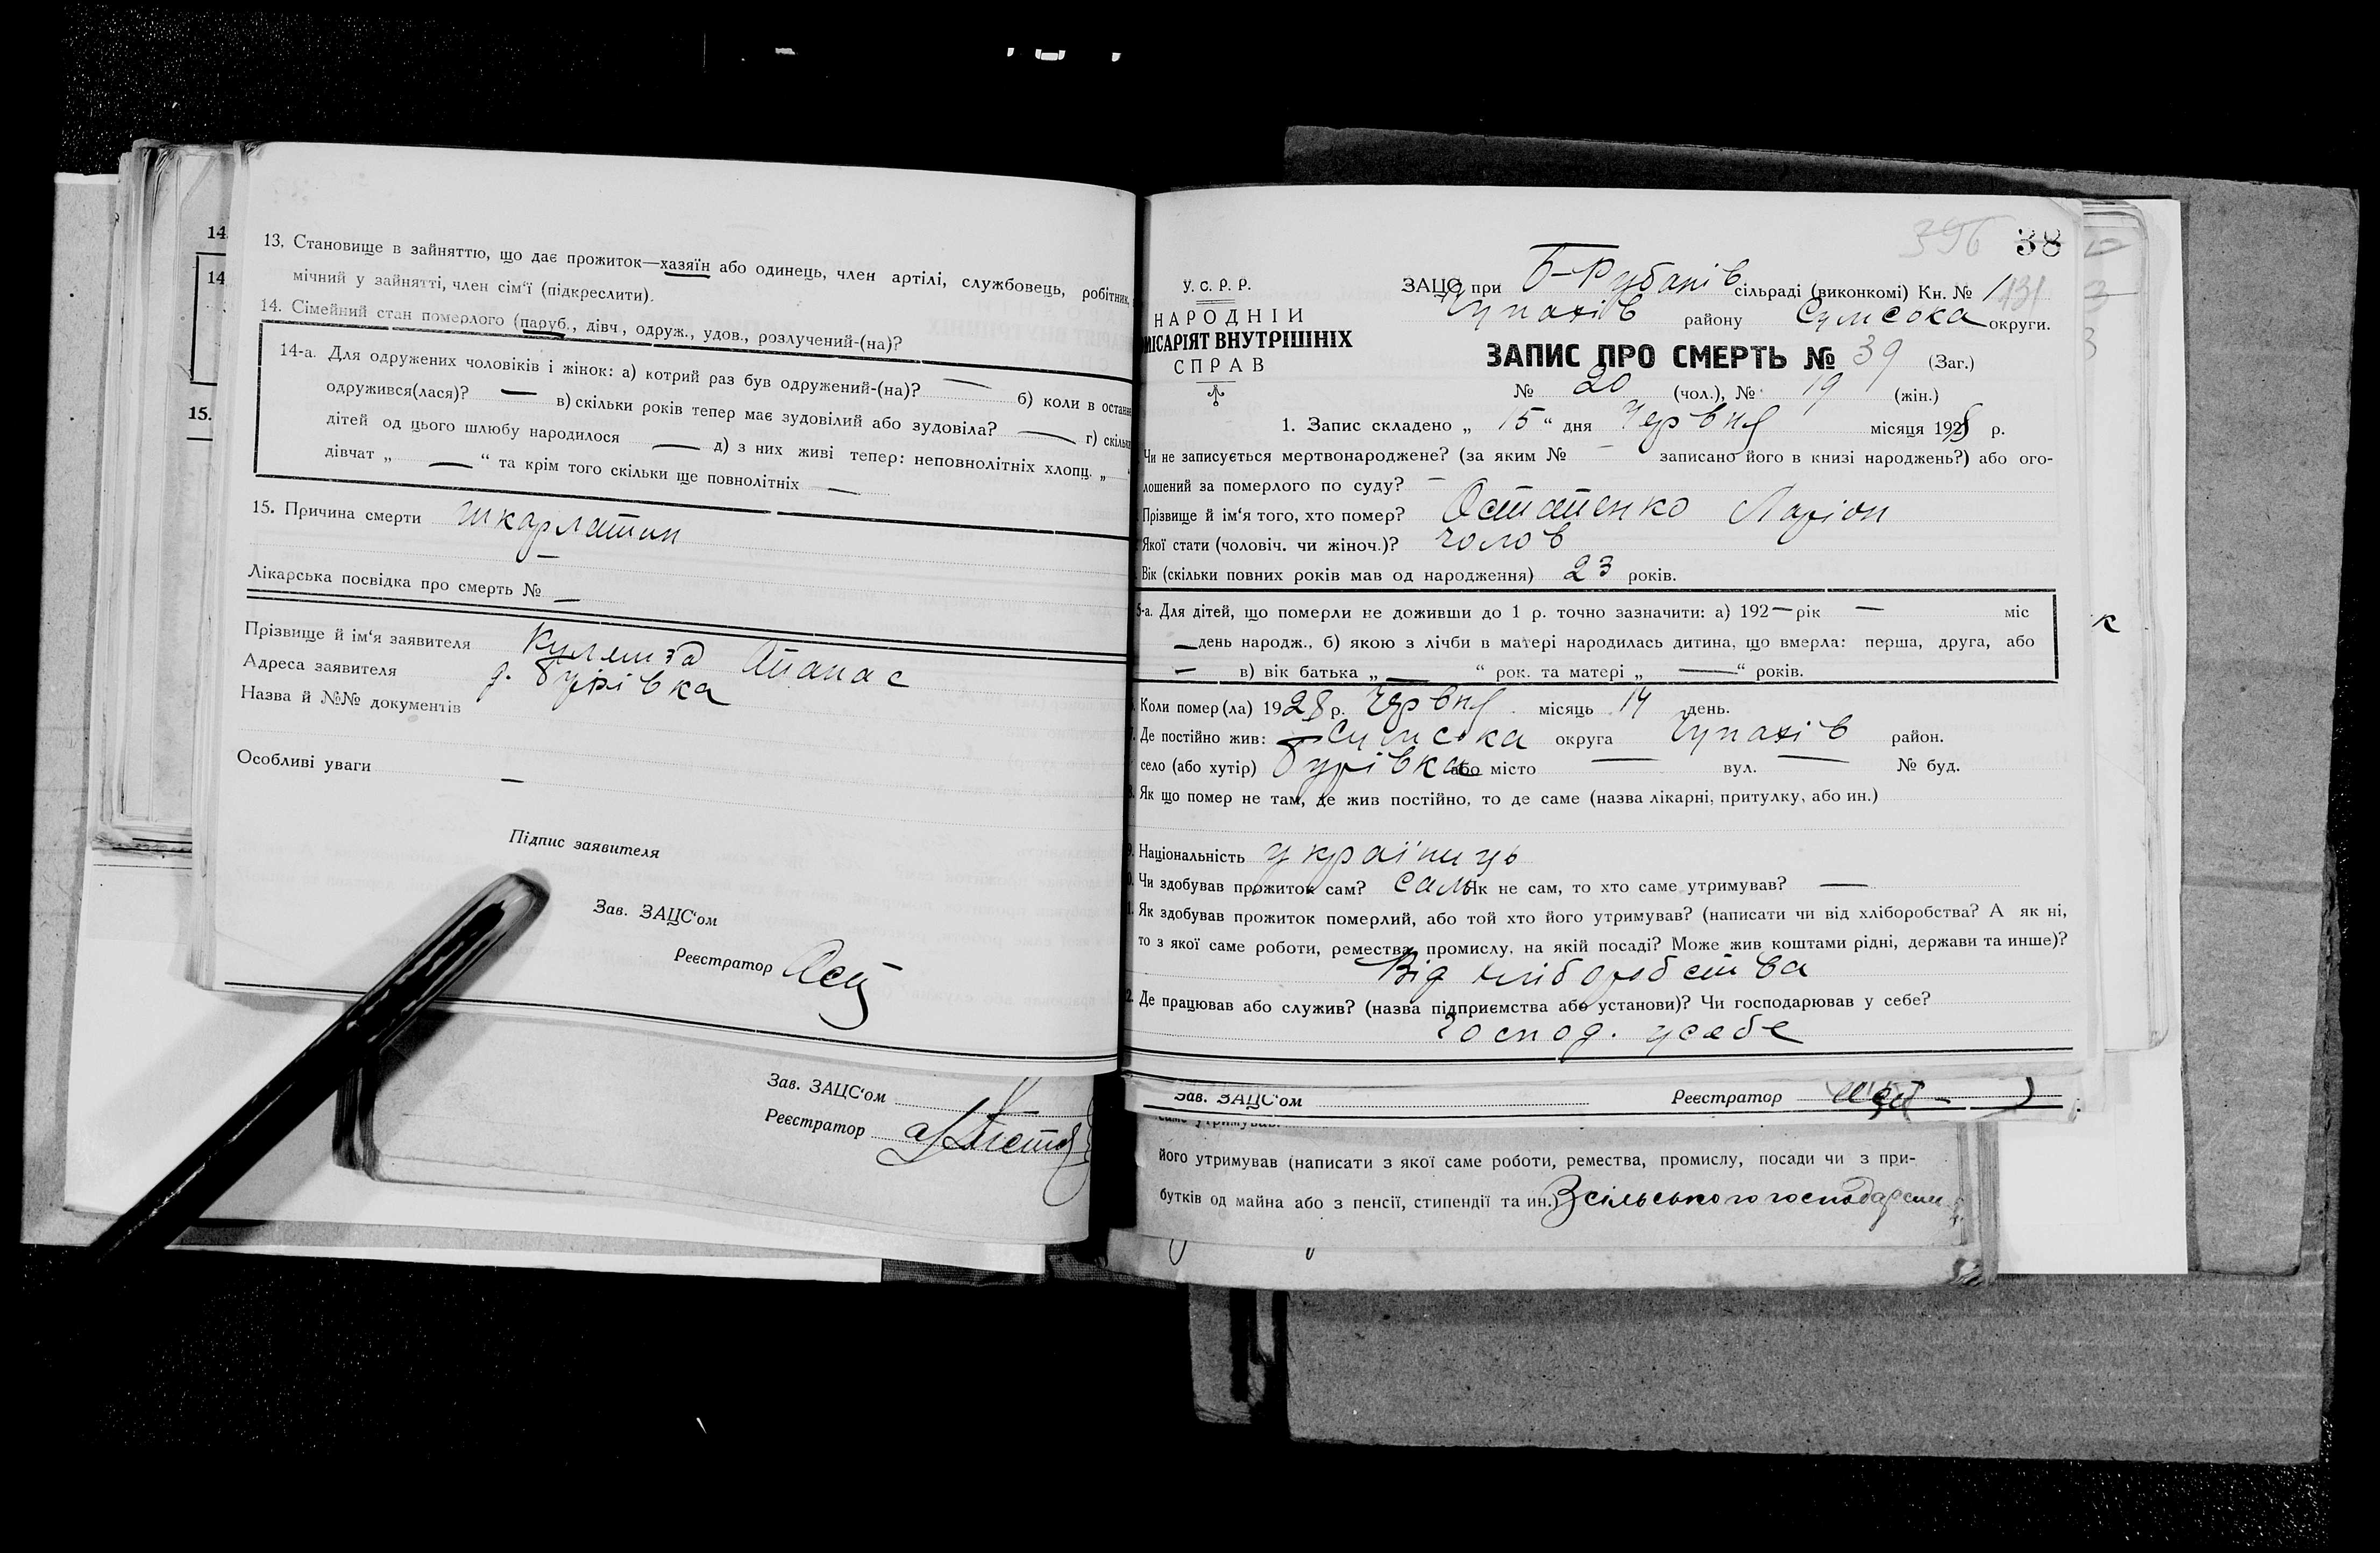 14.
14
15.
13. Становище в зайняттю, що дає прожиток—хазяїн або одинець, член артілі, службовець, робітник,
мічний у зайнятті, член сім'ї (підкреслити).
14. Сімейний стан померлого (паруб., дівч., одруж., удов., розлучений-(на)?
14-а. Для одружених чоловіків і жінок: а) котрий раз був одружений-(на)? — б) коли в останн
одружився(лася)? — в) скільки років тепер має зудовілий або зудовіла? — г) скільк
дітей од цього шлюбу народилося — д) з них живі тепер: неповнолітніх хлопц. „
дівчат „ — “ та крім того скільки ще повнолітніх —
15. Причина смерти шкарлатин
—
Лікарська посвідка про смерть № —
Прізвище й ім'я заявителя Апанас
Адреса заявителя д. Бурівка
Назва й №№ документів
Особливі уваги —
Підпис заявителя
Зав. ЗАЦС'ом
Реєстратор
Зав. ЗАЦС'ом
Реєстратор
396 38
У. С. Р. Р.
НАРОДНІЙ
МІСАРІЯТ ВНУТРІШНІХ
СПРАВ
ЗАЦС при Б-Рубанів сільраді (виконкомі) Кн. № 1
Чупахів району Сумська округи.
ЗАПИС ПРО СМЕРТЬ № 39 (Заг.)
№ 20 (чол.), № 19 (жін.)
1. Запис складено „ 15 “ дня Червня місяця 1928 р.
Чи не записується мертвонароджене? (за яким № — записано його в книзі народжень?) або ого-
лошений за померлого по суду? —
Прізвище й ім'я того, хто помер? Остатенко Ларіон
Якої стати (чоловіч. чи жіноч.)? чолов
Вік (скільки повних років мав од народження) 23 років.
5-а. Для дітей, що померли не доживши до 1 р. точно зазначити: а) 192— рік — міс
— день народж., б) якою з лічби в матері народилась дитина, що вмерла: перша, друга, або
— в) вік батька „ — “ рок. та матері „ — “ років.
Коли помер (ла) 1928 р. Червня місяць 14 день.
Де постійно жив: Сумська округа Чупахів район.
село (або хутір) Бурівка або місто — вул. — № буд.
Як що помер не там, де жив постійно, то де саме (назва лікарні, притулку, або ин.)
9. Національність українць
Чи здобував прожиток сам? сам Як не сам, то хто саме утримував? —
Як здобував прожиток померлий, або той хто його утримував? (написати чи від хліборобства? А як ні,
то з якої саме роботи, ремества, промислу, на якій посаді? Може жив коштами рідні, держави та инше)?
Від хліборобства
2. Де працював або служив? (назва підприємства або установи)? Чи господарював у себе?
Господ. усебе
Зав. ЗАЦС'ом Реєстратор
саме утримував.
його утримував (написати з якої саме роботи, ремества, промислу, посади чи з при-
бутків од майна або з пенсії, стипендії та ин.) З сільського господарств